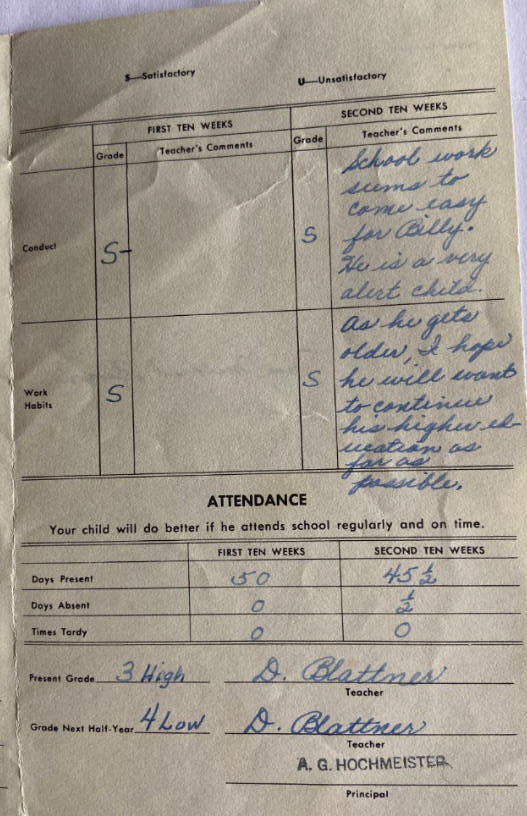 S—Satisfactory U—Unsatisfactory
FIRST TEN WEEKS SECOND TEN WEEKS
Grade Teacher's Comments Grade Teacher's Comments
Conduct S- S
School work
seems to
come easy
for Billy.
He is a very
alert child.
Work
Habits
S S
As he gets
older, I hope
he will want
to continue
his higher ed-
ucation as
far as
possible.
ATTENDANCE
Your child will do better if he attends school regularly and on time.
FIRST TEN WEEKS SECOND TEN WEEKS
Days Present 50 45 1/2
Days Absent 0 1/2
Times Tardy 0 0
Present Grade 3 High D. Blattner
Teacher
Grade Next Half-Year 4 Low D. Blattner
Teacher
A. G. HOCHMEISTER
Principal